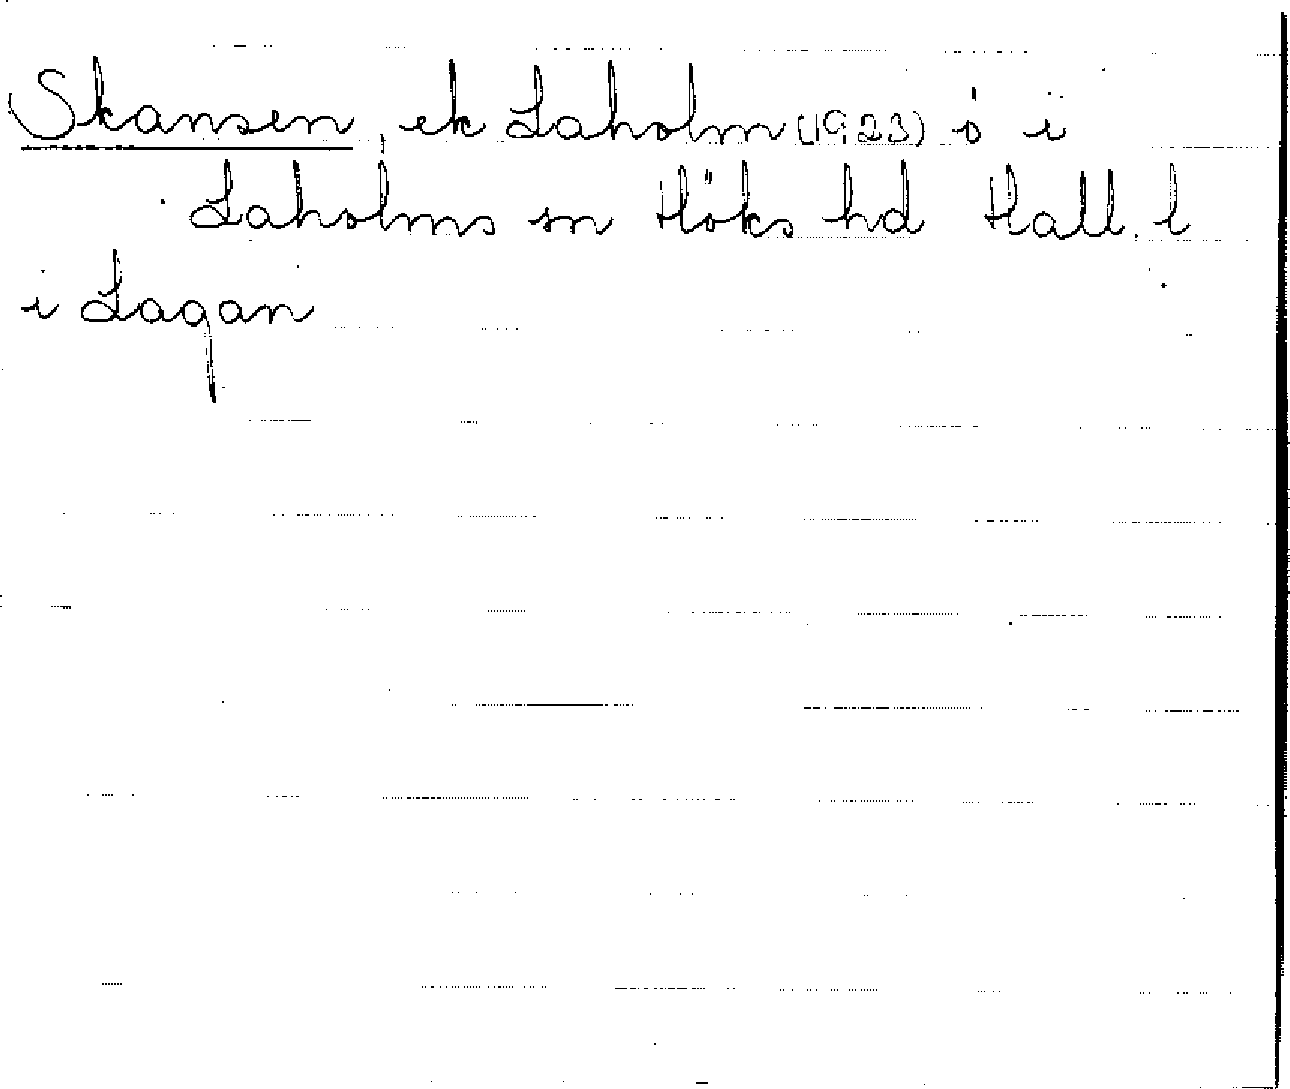 Skansen, ek Laholm (1923) ö i
Laholms sn Höks hd Hall. l
i Lagan